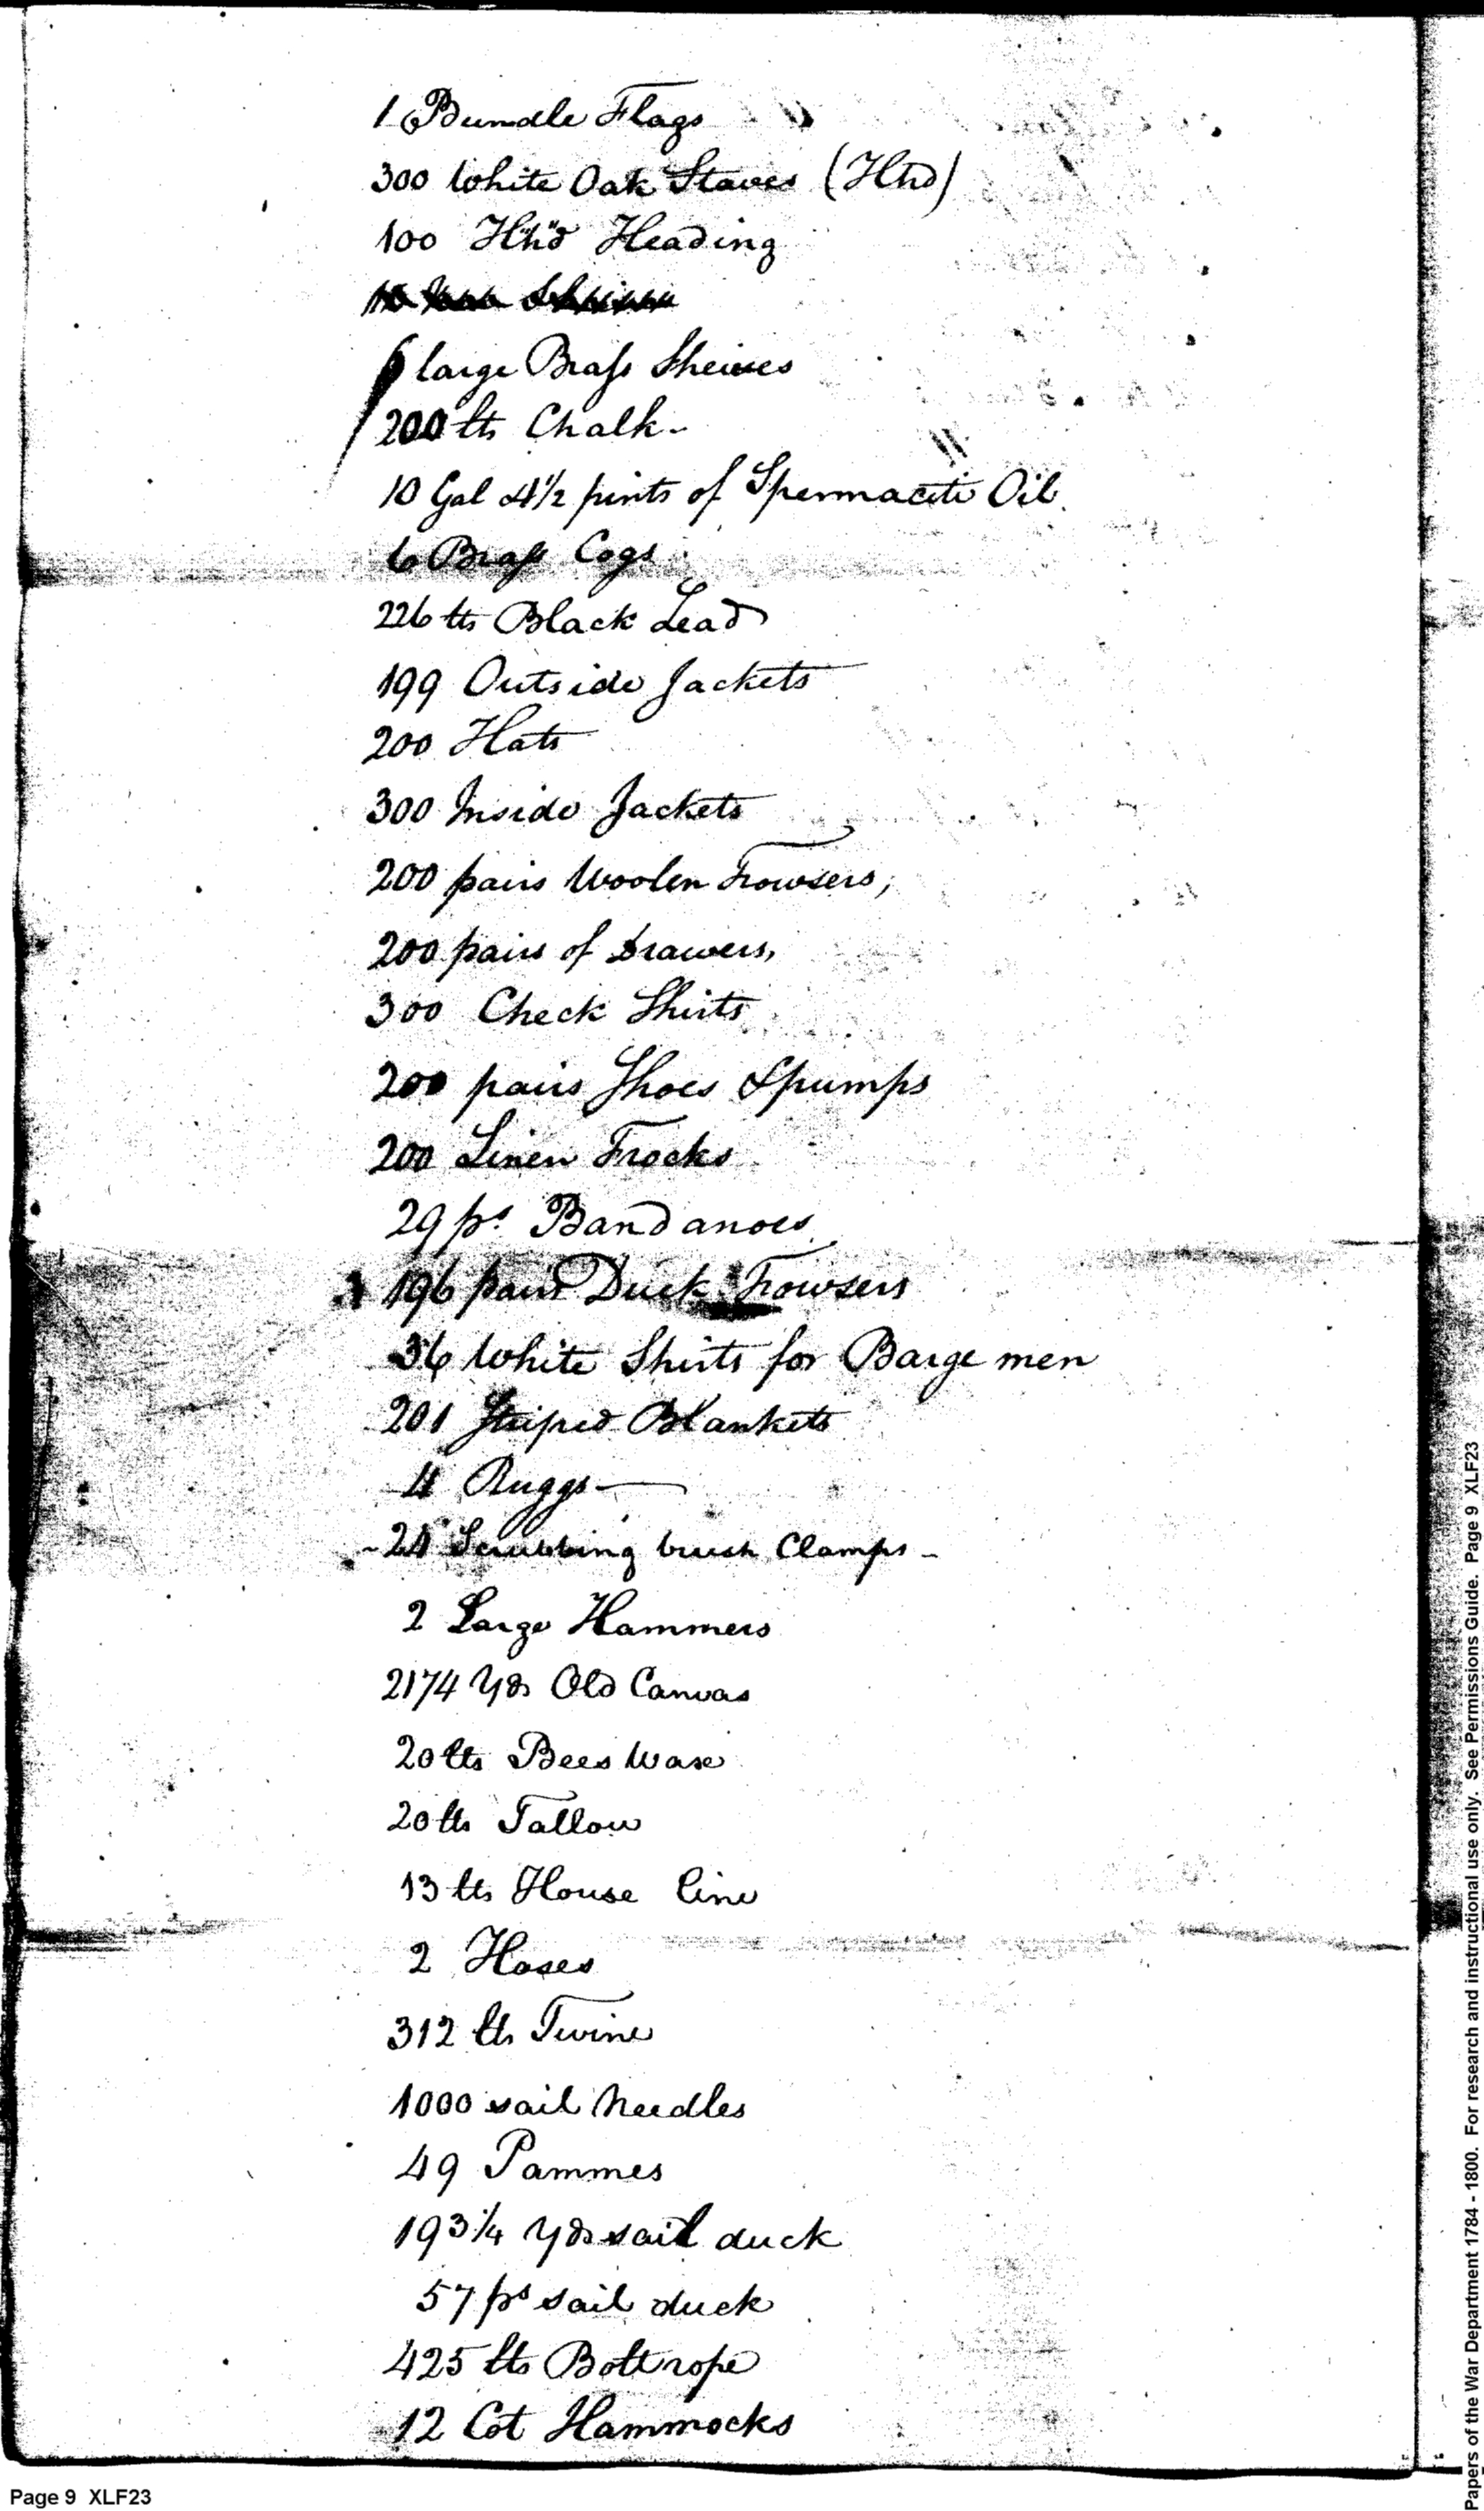 1 Bundle Flags
300 White Oak Staves (Hhd)
100 Hhd Heading
6 large Brass Sheives
200 lbs Chalk-
10 Gal 4 1/2 pints of Spermaceti Oil.
6 Brass Cogs
226 lbs Black Lead
199 Outside Jackets
200 Hats
300 Inside Jackets
200 pairs Woolen Trowsers,
200 pairs of drawers,
300 Check Shirts
200 pairs Shoes & pumps
200 Linen Frocks
29 ps. Bandanoes
196 pair Duck Trowsers
36 White Shirts for Barge men
201 Striped Blankets
4 Ruggs—
24 Scrubbing brush Clamps-
2 Large Hammers
2174 Yds Old Canvas
20 lbs Bees Wax
20 lbs Tallow
13 lbs House line
2 Hoses
312 lbs Twine
1000 sail Needles
49 Pammes
193 1/4 Yds sail duck
57 ps sail duck
425 lbs Bolt rope
12 Cot Hammocks
Page 9 XLF23
Papers of the War Department 1784 - 1800. For research and instructional use only. See Permissions Guide. Page 9 XLF23